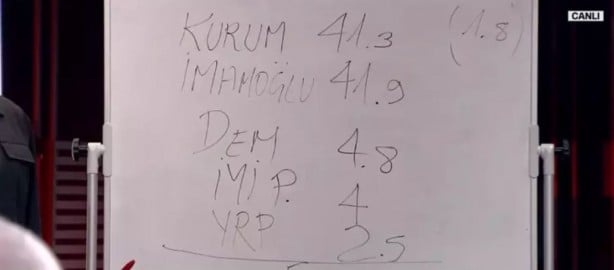 CANLI
KURUM 41.3 (1.8)
İMAMOĞLU 41.9
DEM 4.8
İYİ P. 4
YRP 2.5